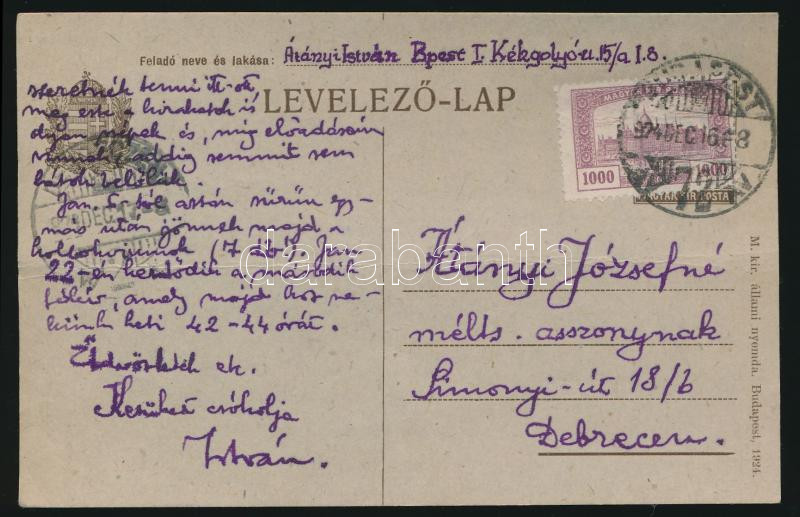 Feladó neve és lakása: Átányi István Bpest I. Kékgolyó-u. 15/a I. 8.
LEVELEZŐ-LAP
szeretnék tenni itt-ott,
meg este a
olyan népek és, míg előadásain
addig semmit sem
látok belőlük.
Jan. 5 től aztán sűrűn egy-
más után jönnek majd a
kollokviumok (7 db). Jan.
22-én kezdődik a második
félév, amely majd hoz ne-
künk heti 42-44 órát.
ek.
Kezüket csókolja
István.
MAGYAR
1000 1000
MAGYAR KIR. POSTA
BUDAPEST
924 DEC 16. F8
72
924 DEC 17
Átányi Józsefné
mélts. asszonynak
Simonyi-út 18/b
Debrecen.
M. kir. állami nyomda. Budapest, 1924.
darabanth